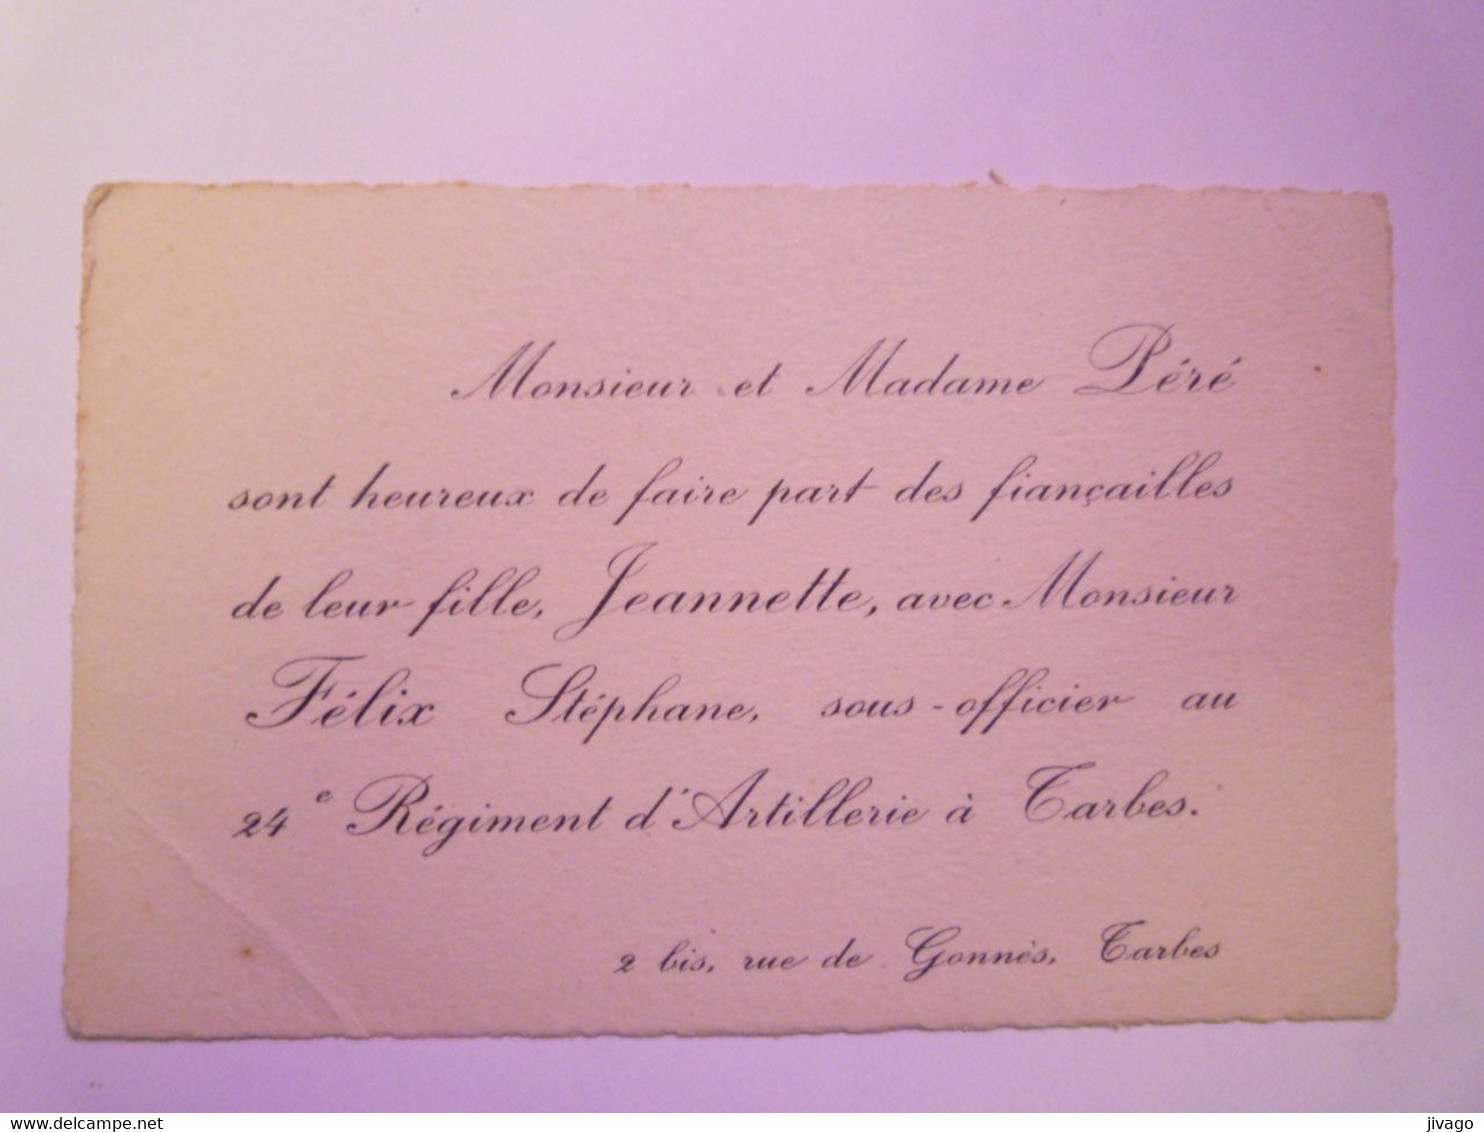 Monsieur et Madame Péré
sont heureux de faire part des fiançailles
de leur fille, Jeannette, avec Monsieur
Félix Stéphane, sous-officier au
24e Régiment d'Artillerie à Tarbes.
2 bis, rue de Gonnès, Tarbes
www.delcampe.net
jivago